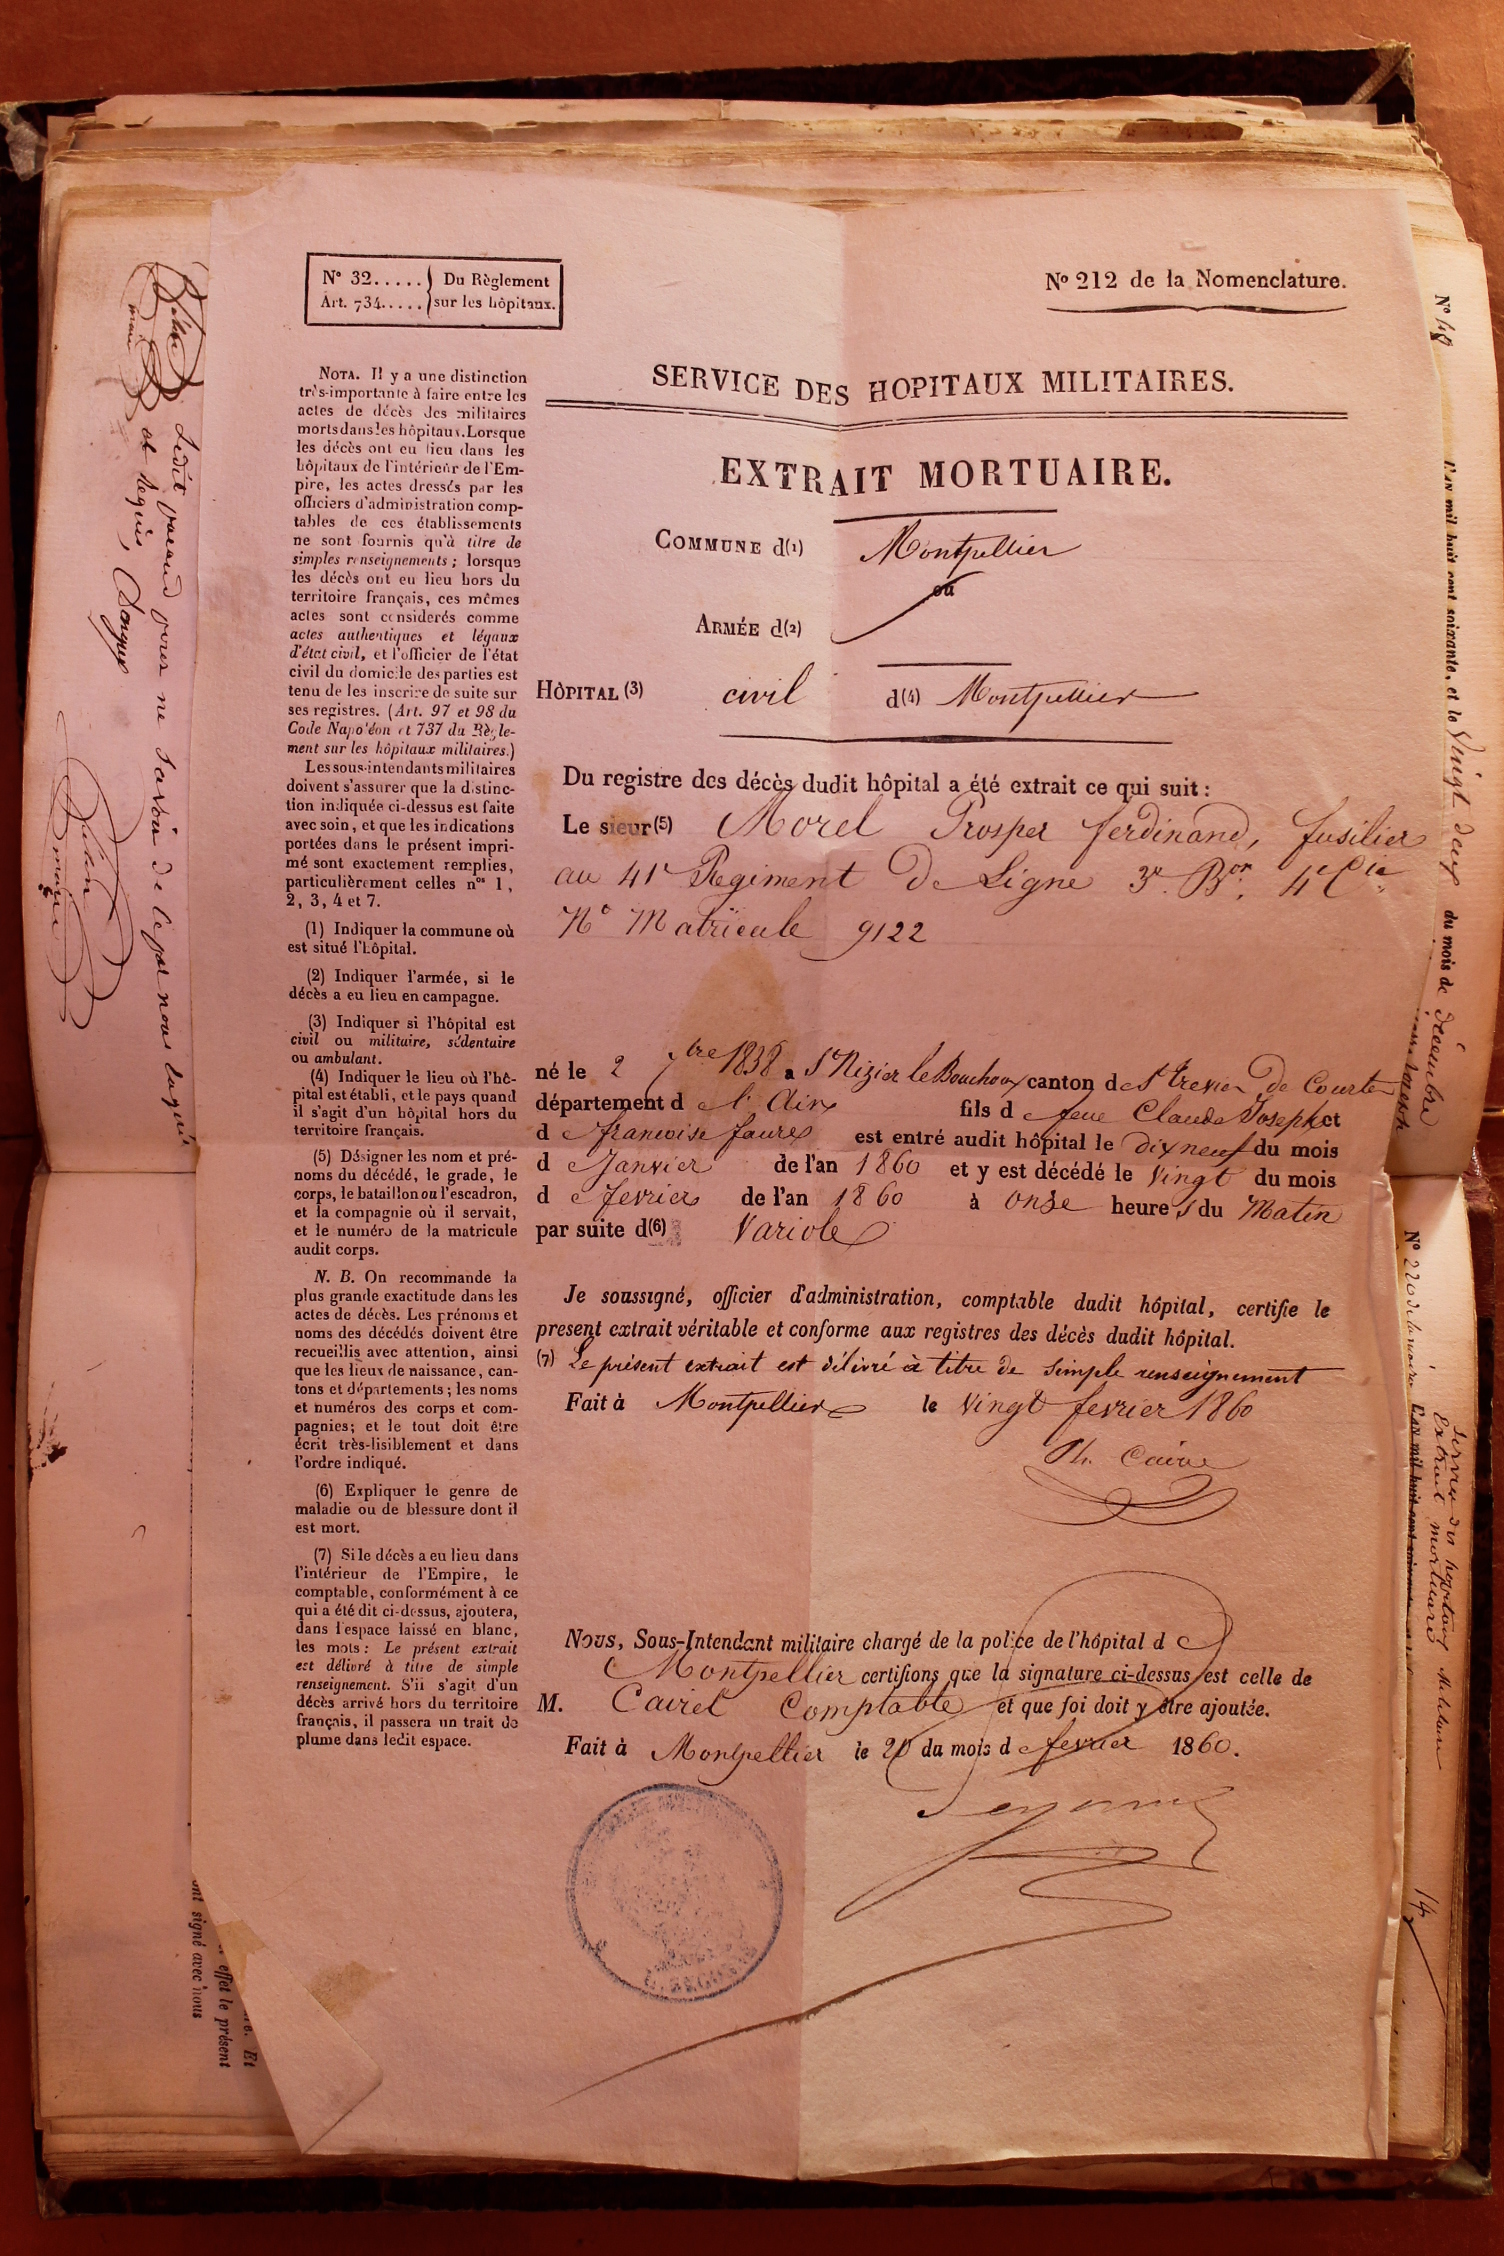 N° 32..... Du Règlement
Art. 734..... sur les hôpitaux.
N° 212 de la Nomenclature.
SERVICE DES HOPITAUX MILITAIRES.
EXTRAIT MORTUAIRE.
COMMUNE d(1) Montpellier
ou
ARMÉE d(2)
HÔPITAL (3) civil d(4) Montpellier
Du registre des décès dudit hôpital a été extrait ce qui suit :
Le sieur (5) Morel Prosper ferdinand, fusilier
au 41e Regiment De Ligne 3e Bon. 4e Cie
N° Matricule 9122
né le 2 7bre 1838 a St Nizier le Bouchoux canton de St Trevier De Courte
département de l'Ain fils de feue Claude Joseph et
de francoise faure est entré audit hôpital le dix neuf du mois
de Janvier de l'an 1860 et y est décédé le Vingt du mois
de fevrier de l'an 1860 à onze heures du Matin
par suite d(6) Variole
Je soussigné, officier d'administration, comptable dudit hôpital, certifie le
present extrait véritable et conforme aux registres des décès dudit hôpital.
(7) Le présent extrait est délivré à titre de simple renseignement
Fait à Montpellier le Vingt fevrier 1860
Nous, Sous-Intendant militaire chargé de la police de l'hôpital de
Montpellier certifions que la signature ci-dessus est celle de
M. Cairel Comptable et que foi doit y être ajoutée.
Fait à Montpellier le 20 du mois de fevrier 1860.
NOTA. Il y a une distinction
très-importante à faire entre les
actes de décès des militaires
morts dans les hôpitaux. Lorsque
les décès ont eu lieu dans les
hôpitaux de l'intérieur de l'Em-
pire, les actes dressés par les
officiers d'administration comp-
tables de ces établissements
ne sont fournis qu'à titre de
simples renseignements ; lorsque
les décès ont eu lieu hors du
territoire français, ces mêmes
actes sont considerés comme
actes authentiques et légaux
d'état civil, et l'officier de l'état
civil du domicile des parties est
tenu de les inscrire de suite sur
ses registres. (Art. 97 et 98 du
Code Napoléon et 737 du Règle-
ment sur les hôpitaux militaires.)
Les sous-intendants militaires
doivent s'assurer que la distinc-
tion indiquée ci-dessus est faite
avec soin, et que les indications
portées dans le présent impri-
mé sont exactement remplies,
particulièrement celles nos 1,
2, 3, 4 et 7.
(1) Indiquer la commune où
est situé l'hôpital.
(2) Indiquer l'armée, si le
décès a eu lieu en campagne.
(3) Indiquer si l'hôpital est
civil ou militaire, sédentaire
ou ambulant.
(4) Indiquer le lieu où l'hô-
pital est établi, et le pays quand
il s'agit d'un hôpital hors du
territoire français.
(5) Désigner les nom et pré-
noms du décédé, le grade, le
corps, le bataillon ou l'escadron,
et la compagnie où il servait,
et le numéro de la matricule
audit corps.
N. B. On recommande la
plus grande exactitude dans les
actes de décès. Les prénoms et
noms des décédés doivent être
recueillis avec attention, ainsi
que les lieux de naissance, can-
tons et départements ; les noms
et numéros des corps et com-
pagnies ; et le tout doit être
écrit très-lisiblement et dans
l'ordre indiqué.
(6) Expliquer le genre de
maladie ou de blessure dont il
est mort.
(7) Si le décès a eu lieu dans
l'intérieur de l'Empire, le
comptable, conformément à ce
qui a été dit ci-dessus, ajoutera,
dans l'espace laissé en blanc,
les mots : Le présent extrait
est délivré à titre de simple
renseignement. S'il s'agit d'un
décès arrivé hors du territoire
français, il passera un trait de
plume dans ledit espace.
N° 48
L'an mil huit cent soixante, et le Vingt deux du mois de décembre
Extrait mortuaire
14
ont signé avec nous
effet le présent
Et